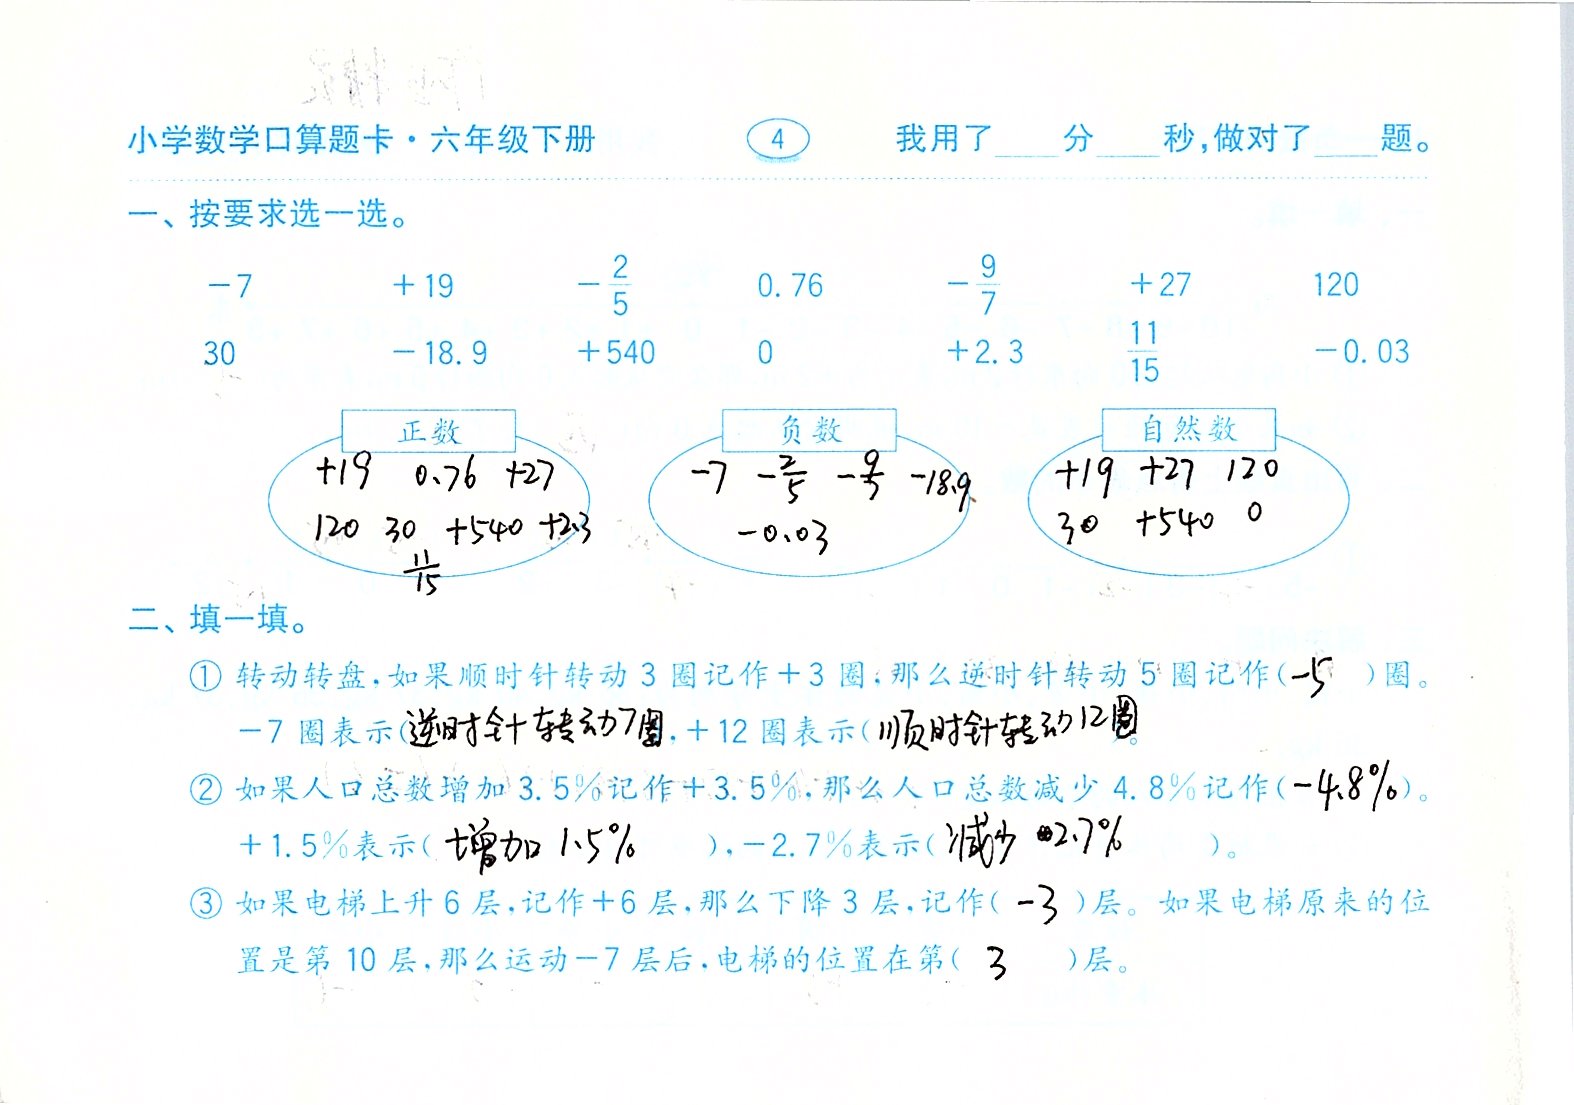 小学数学口算题卡·六年级下册 4 我用了____分____秒,做对了____题。
一、按要求选一选。
-7 +19 -2/5 0.76 -9/7 +27 120
30 -18.9 +540 0 +2.3 11/15 -0.03
正数 负数 自然数
+19 0.76 +27 -7 -2/5 -9/7 -18.9 +19 +27 120
120 30 +540 +2.3 -0.03 30 +540 0
11/15
二、填一填。
① 转动转盘,如果顺时针转动3圈记作+3圈,那么逆时针转动5圈记作(-5)圈。
-7圈表示(逆时针转动7圈,+12圈表示(顺时针转动12圈。
② 如果人口总数增加3.5%记作+3.5%,那么人口总数减少4.8%记作(-4.8%)。
+1.5%表示(增加1.5%),-2.7%表示(减少2.7%)。
③ 如果电梯上升6层,记作+6层,那么下降3层,记作(-3)层。如果电梯原来的位
置是第10层,那么运动-7层后,电梯的位置在第(3)层。